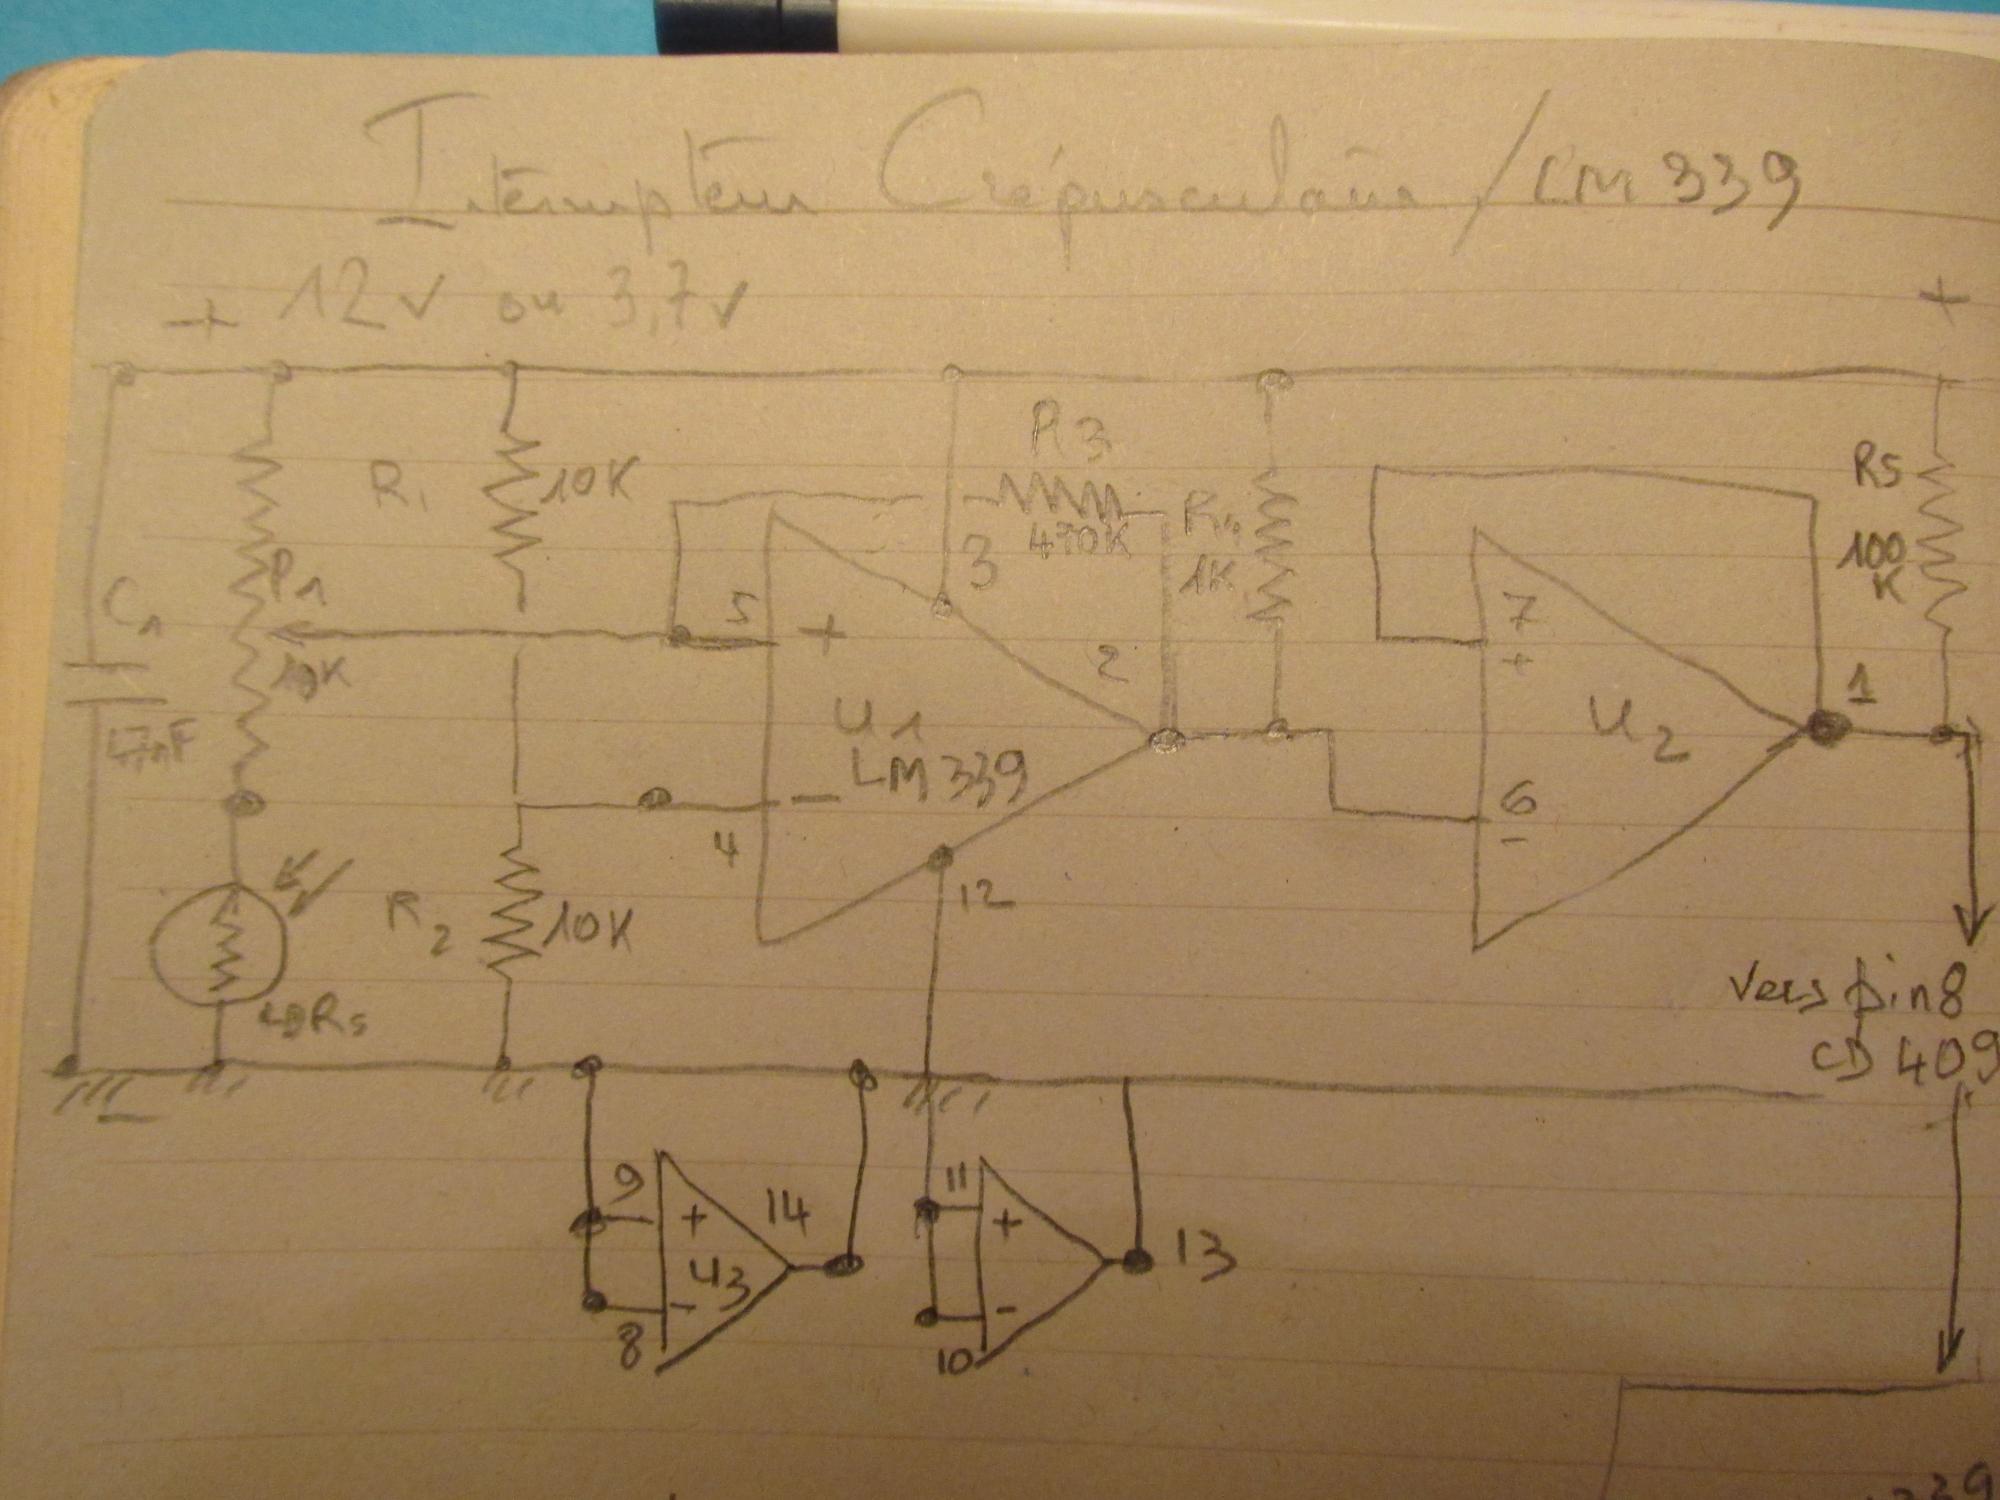 Interrupteur Crépusculaire / LM 339
+ 12V ou 3,7V +
R3
R1 10K 470K R4 R5
3 1K 100
K
P1 5 + 7
C1 2 +
10K U1 U2 1
47nF LM 339
4 - 6
-
12
R2 10K
LDR5
vers pin 8
CD 409
-
9 + 14 11 +
U3 13
8 - 10 -
339